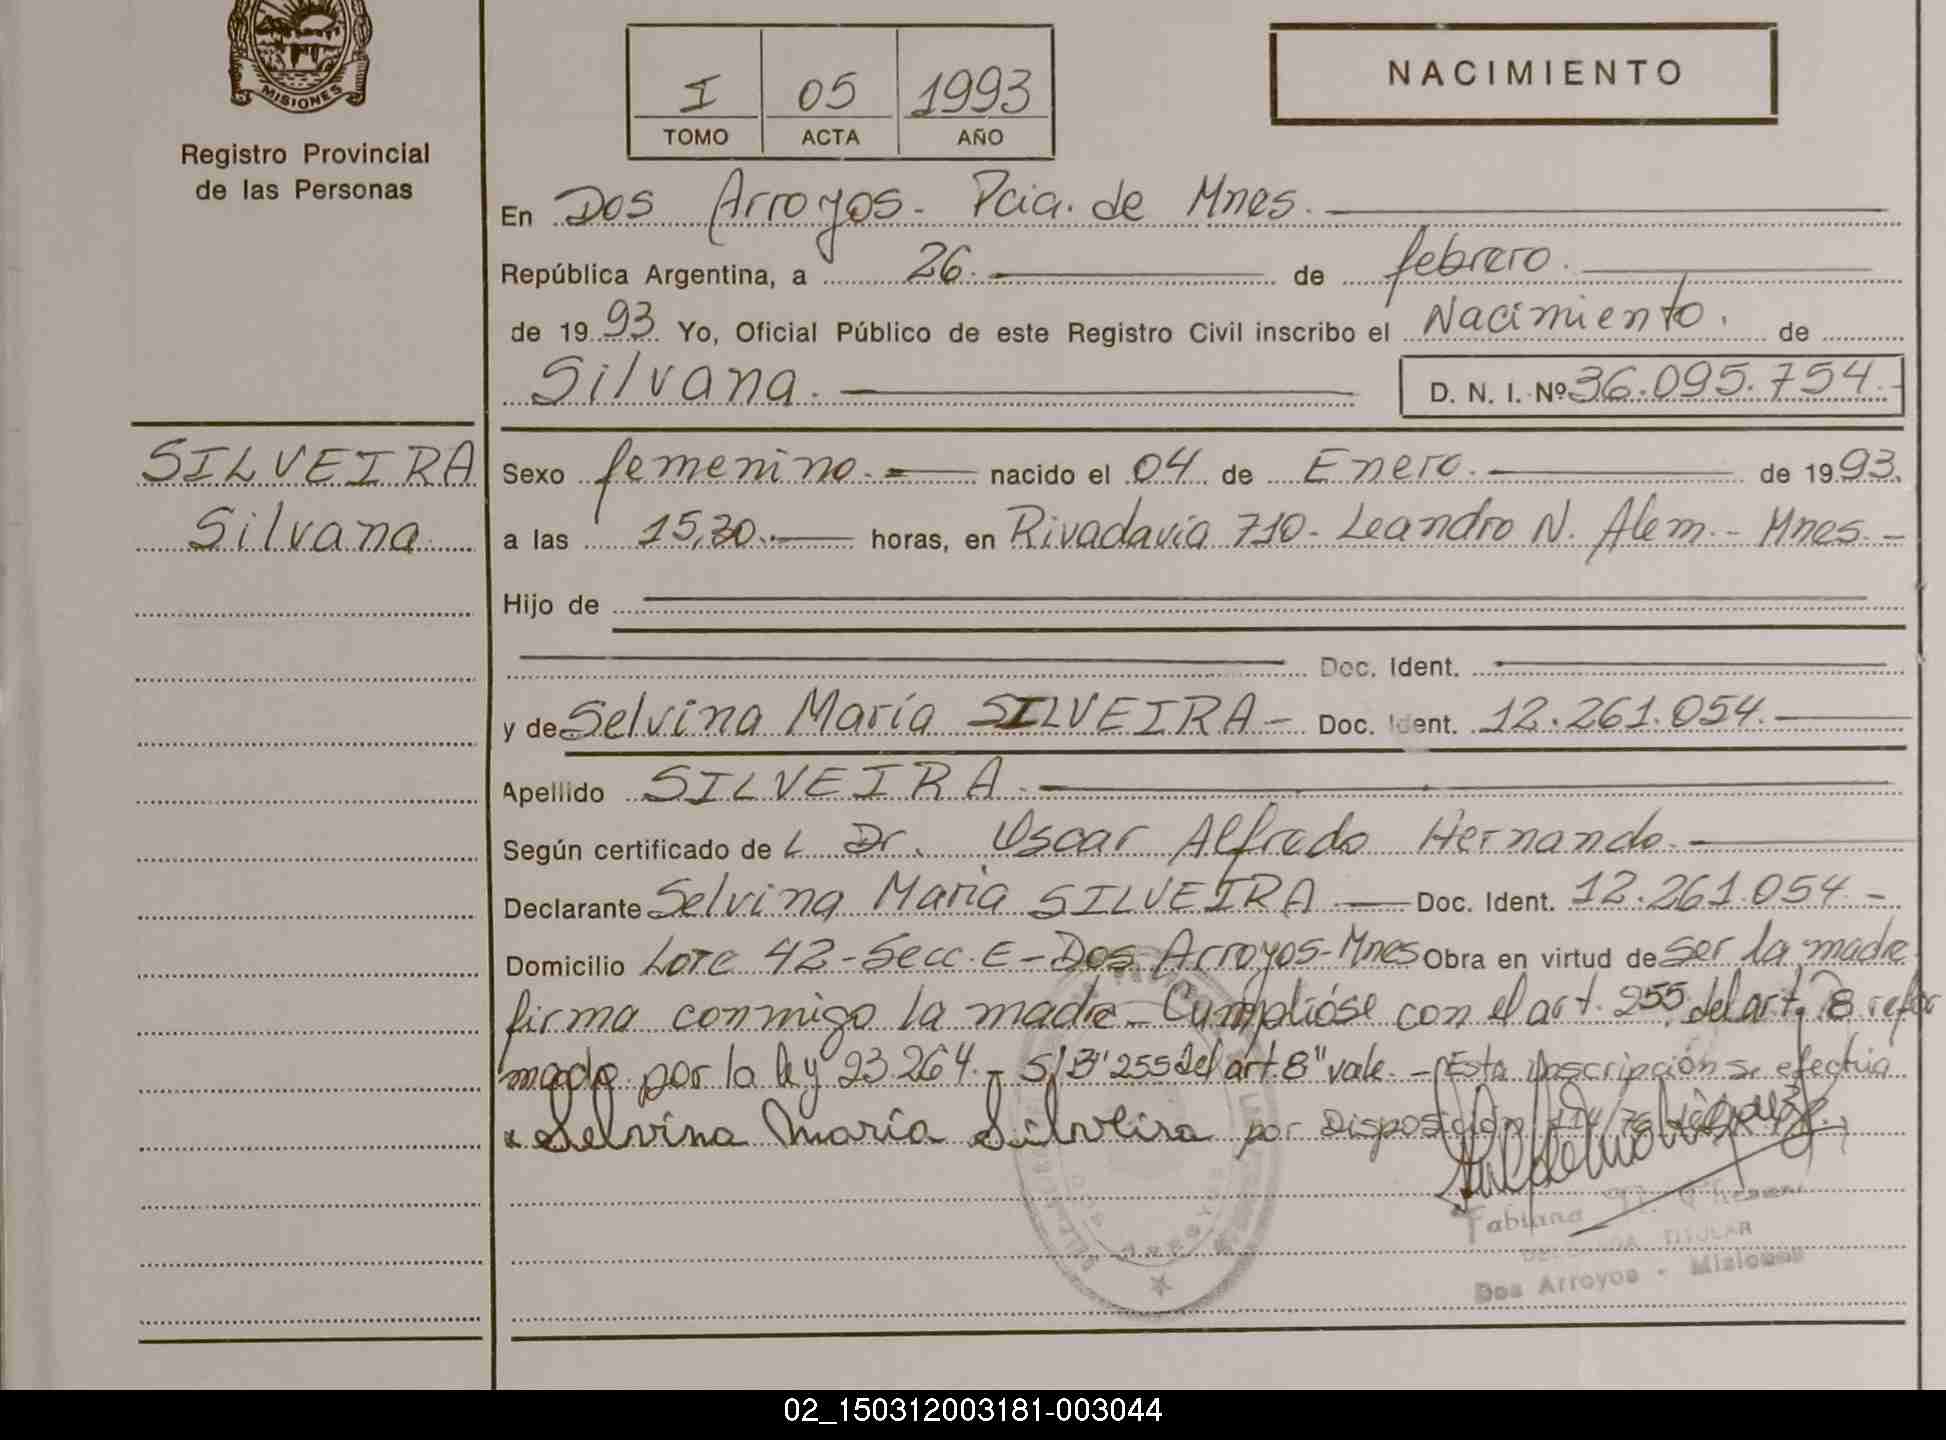 MISIONES
Registro Provincial
de las Personas
I 05 1993
TOMO ACTA AÑO
NACIMIENTO
En Dos Arroyos - Pcia. de Mnes.
República Argentina, a 26. de febrero.
de 1993 Yo, Oficial Público de este Registro Civil inscribo el Nacimiento. de
Silvana. D. N. I. Nº 36.095.754.-
SILVEIRA
Silvana
Sexo femenino. nacido el 04 de Enero. de 1993.
a las 15,30. horas, en Rivadavia 710 - Leandro N. Alem. - Mnes. -
Hijo de
Doc. Ident.
y de Selvina María SILVEIRA - Doc. Ident. 12.261.054.
Apellido SILVEIRA.
Según certificado de L Dr. Oscar Alfredo Hernando.
Declarante Selvina Maria SILVEIRA Doc. Ident. 12.261.054 -
Domicilio Lote 42 - Secc. E - Dos Arroyos - Mnes Obra en virtud de ser la madre
firma conmigo la madre - Cumplióse con el art. 255 del art. 8 refor
mado por la ley 23264. - S/B "255 del art 8" vale. - Esta inscripción se efectúa
Selvina María Silveira por Disposición
Fabiana
TITULAR
Dos Arroyos - Misiones
02_150312003181-003044